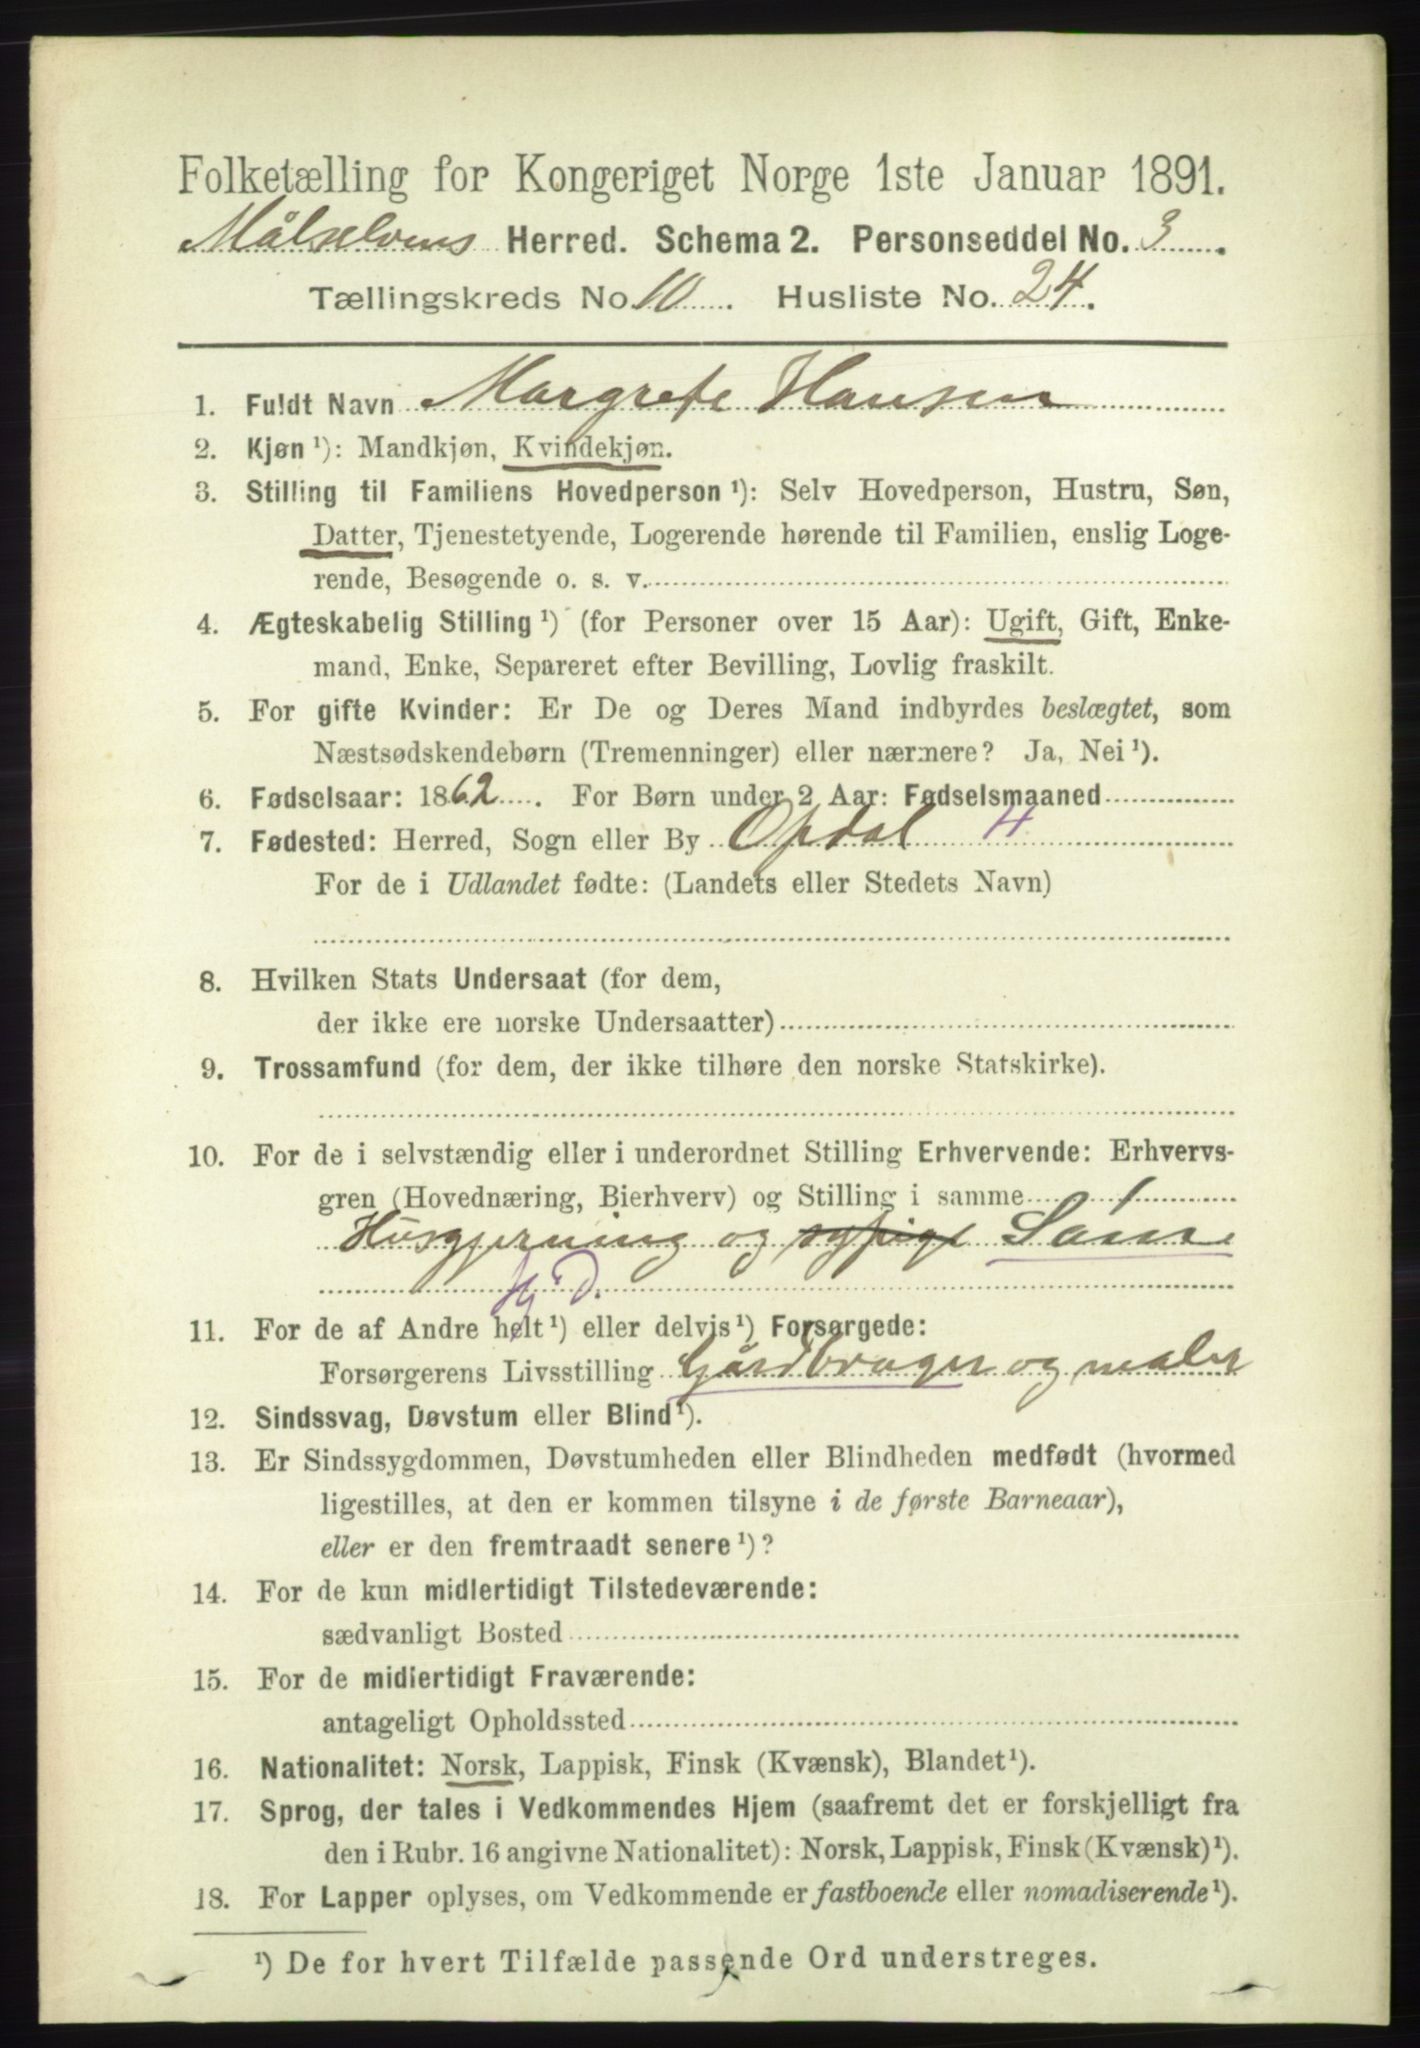 Folketælling for Kongeriget Norge 1ste Januar 1891.
Målselvens Herred. Schema 2. Personseddel No. 3.
Tællingskreds No. 10. Husliste No. 24.
1. Fuldt Navn Margrete Hansen
2. Kjøn ¹): Mandkjøn, Kvindekjøn.
3. Stilling til Familiens Hovedperson ¹): Selv Hovedperson, Hustru, Søn,
Datter, Tjenestetyende, Logerende hørende til Familien, enslig Loge-
rende, Besøgende o. s. v.
4. Ægteskabelig Stilling ¹) (for Personer over 15 Aar): Ugift, Gift, Enke-
mand, Enke, Separeret efter Bevilling, Lovlig fraskilt.
5. For gifte Kvinder: Er De og Deres Mand indbyrdes beslægtet, som
Næstsødskendebørn (Tremenninger) eller nærmere? Ja, Nei ¹).
6. Fødselsaar: 1862. For Børn under 2 Aar: Fødselsmaaned
7. Fødested: Herred, Sogn eller By Opdal 4
For de i Udlandet fødte: (Landets eller Stedets Navn)
8. Hvilken Stats Undersaat (for dem,
der ikke ere norske Undersaatter)
9. Trossamfund (for dem, der ikke tilhøre den norske Statskirke).
10. For de i selvstændig eller i underordnet Stilling Erhvervende: Erhvervs-
gren (Hovednæring, Bierhverv) og Stilling i samme
Husgjerning og sypige
Hj D.
11. For de af Andre helt ¹) eller delvis ¹) Forsørgede:
Forsørgerens Livsstilling Gårdbruger og maler
12. Sindssvag, Døvstum eller Blind ¹).
13. Er Sindssygdommen, Døvstumheden eller Blindheden medfødt (hvormed
ligestilles, at den er kommen tilsyne i de første Barneaar),
eller er den fremtraadt senere ¹)?
14. For de kun midlertidigt Tilstedeværende:
sædvanligt Bosted
15. For de midlertidigt Fraværende:
antageligt Opholdssted
16. Nationalitet: Norsk, Lappisk, Finsk (Kvænsk), Blandet ¹).
17. Sprog, der tales i Vedkommendes Hjem (saafremt det er forskjelligt fra
den i Rubr. 16 angivne Nationalitet): Norsk, Lappisk, Finsk (Kvænsk) ¹).
18. For Lapper oplyses, om Vedkommende er fastboende eller nomadiserende ¹).
¹) De for hvert Tilfælde passende Ord understreges.